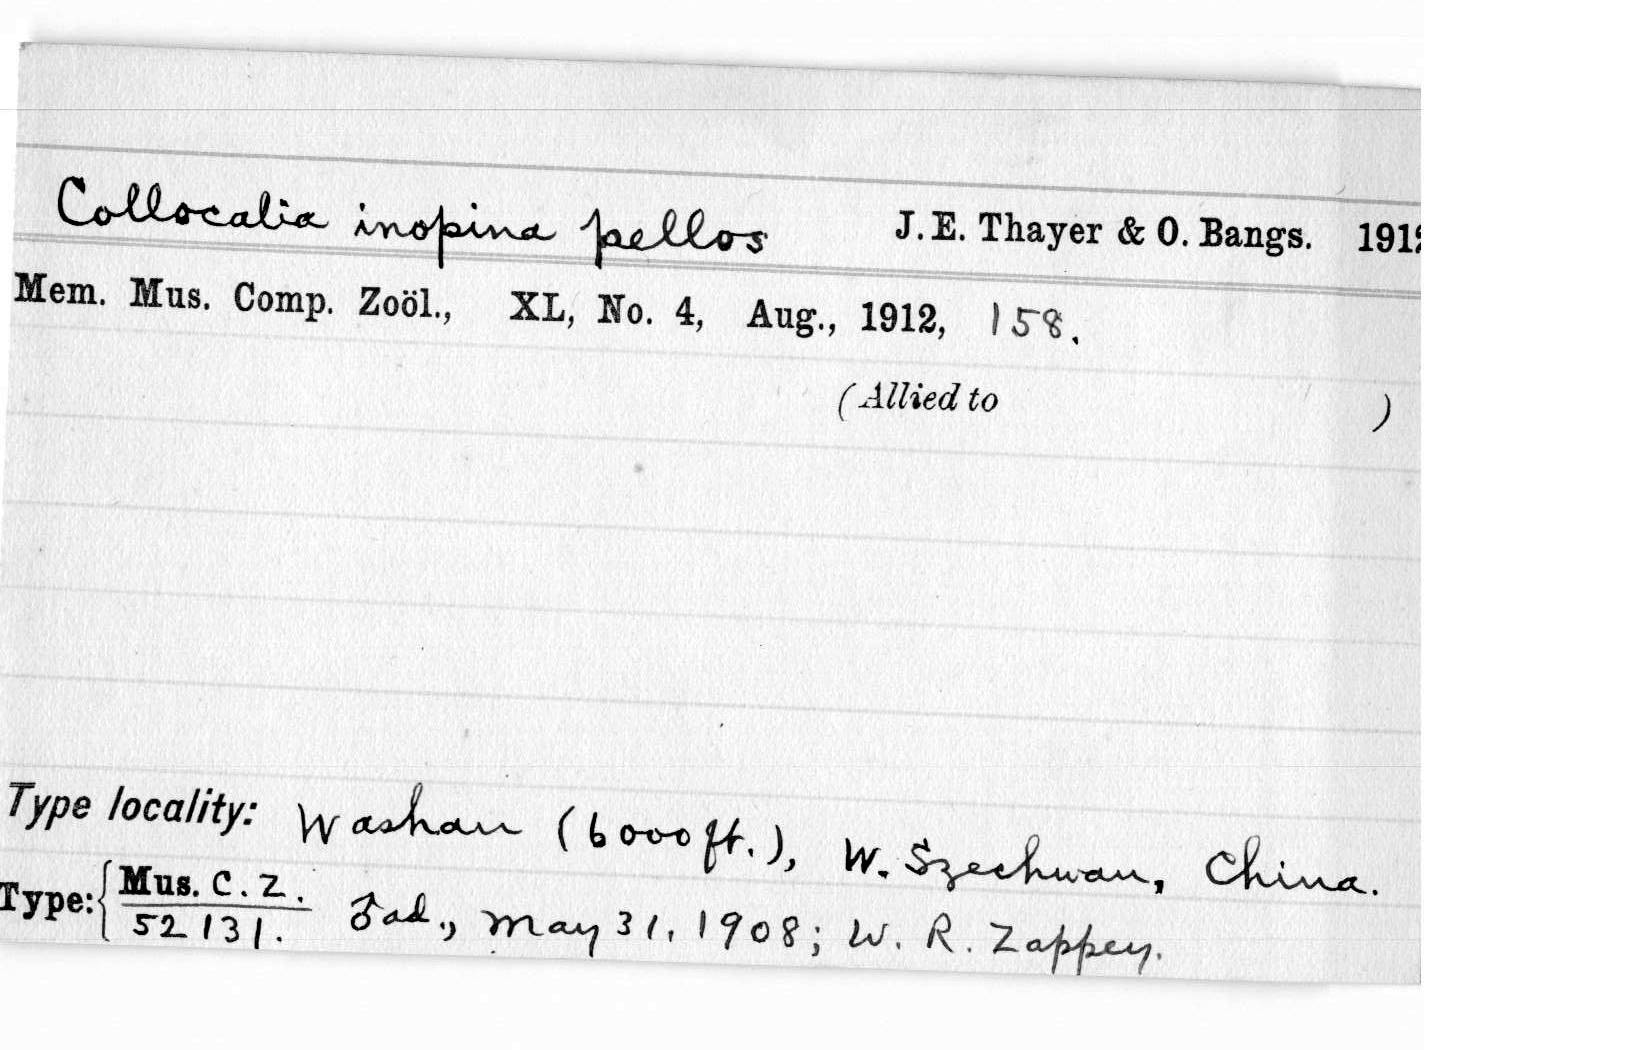 Collocalia inopina pellos J. E. Thayer & O. Bangs. 1912
Mem. Mus. Comp. Zoöl., XL, No. 4, Aug., 1912, 158.
(Allied to )
Type locality: Washan (6000 ft.), W. Szechwan, China.
Type: { Mus. C. Z.
52131. ♂ ad., May 31, 1908; W. R. Zappey.